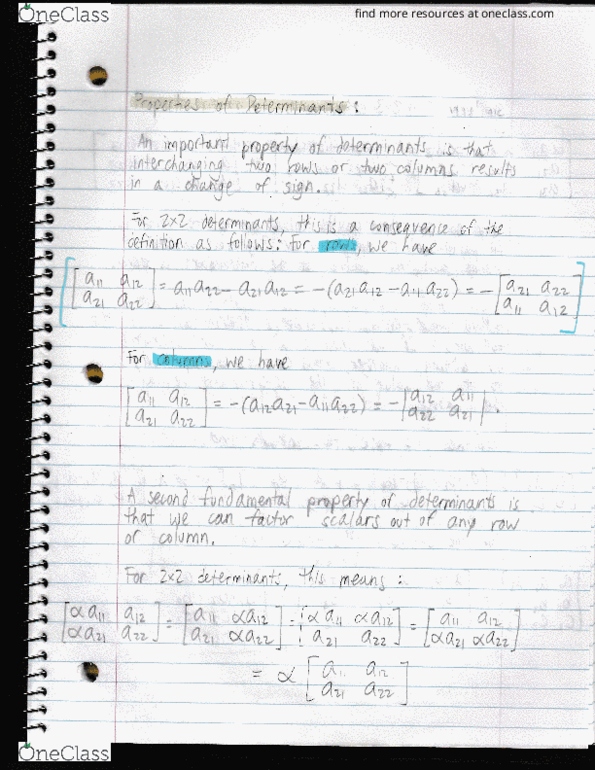 OneClass
find more resources at oneclass.com
Properties of Determinants:
An important property of determinants is that
interchanging two rows or two columns results
in a change of sign.
For 2x2 determinants, this is a consequence of the
definition as follows: For rows, we have
[a11 a12; a21 a22] = a11a22 - a21a12 = -(a21a12 - a11a22) = -[a21 a22; a11 a12]
For columns, we have
[a11 a12; a21 a22] = -(a12a21 - a11a22) = -|a12 a11; a22 a21|.
A second fundamental property of determinants is
that we can factor scalars out of any row
or column.
For 2x2 determinants, this means:
[αa11 a12; αa21 a22] = [a11 αa12; a21 αa22] = [αa11 αa12; a21 a22] = [a11 a12; αa21 αa22]
= α [a11 a12; a21 a22]
OneClass